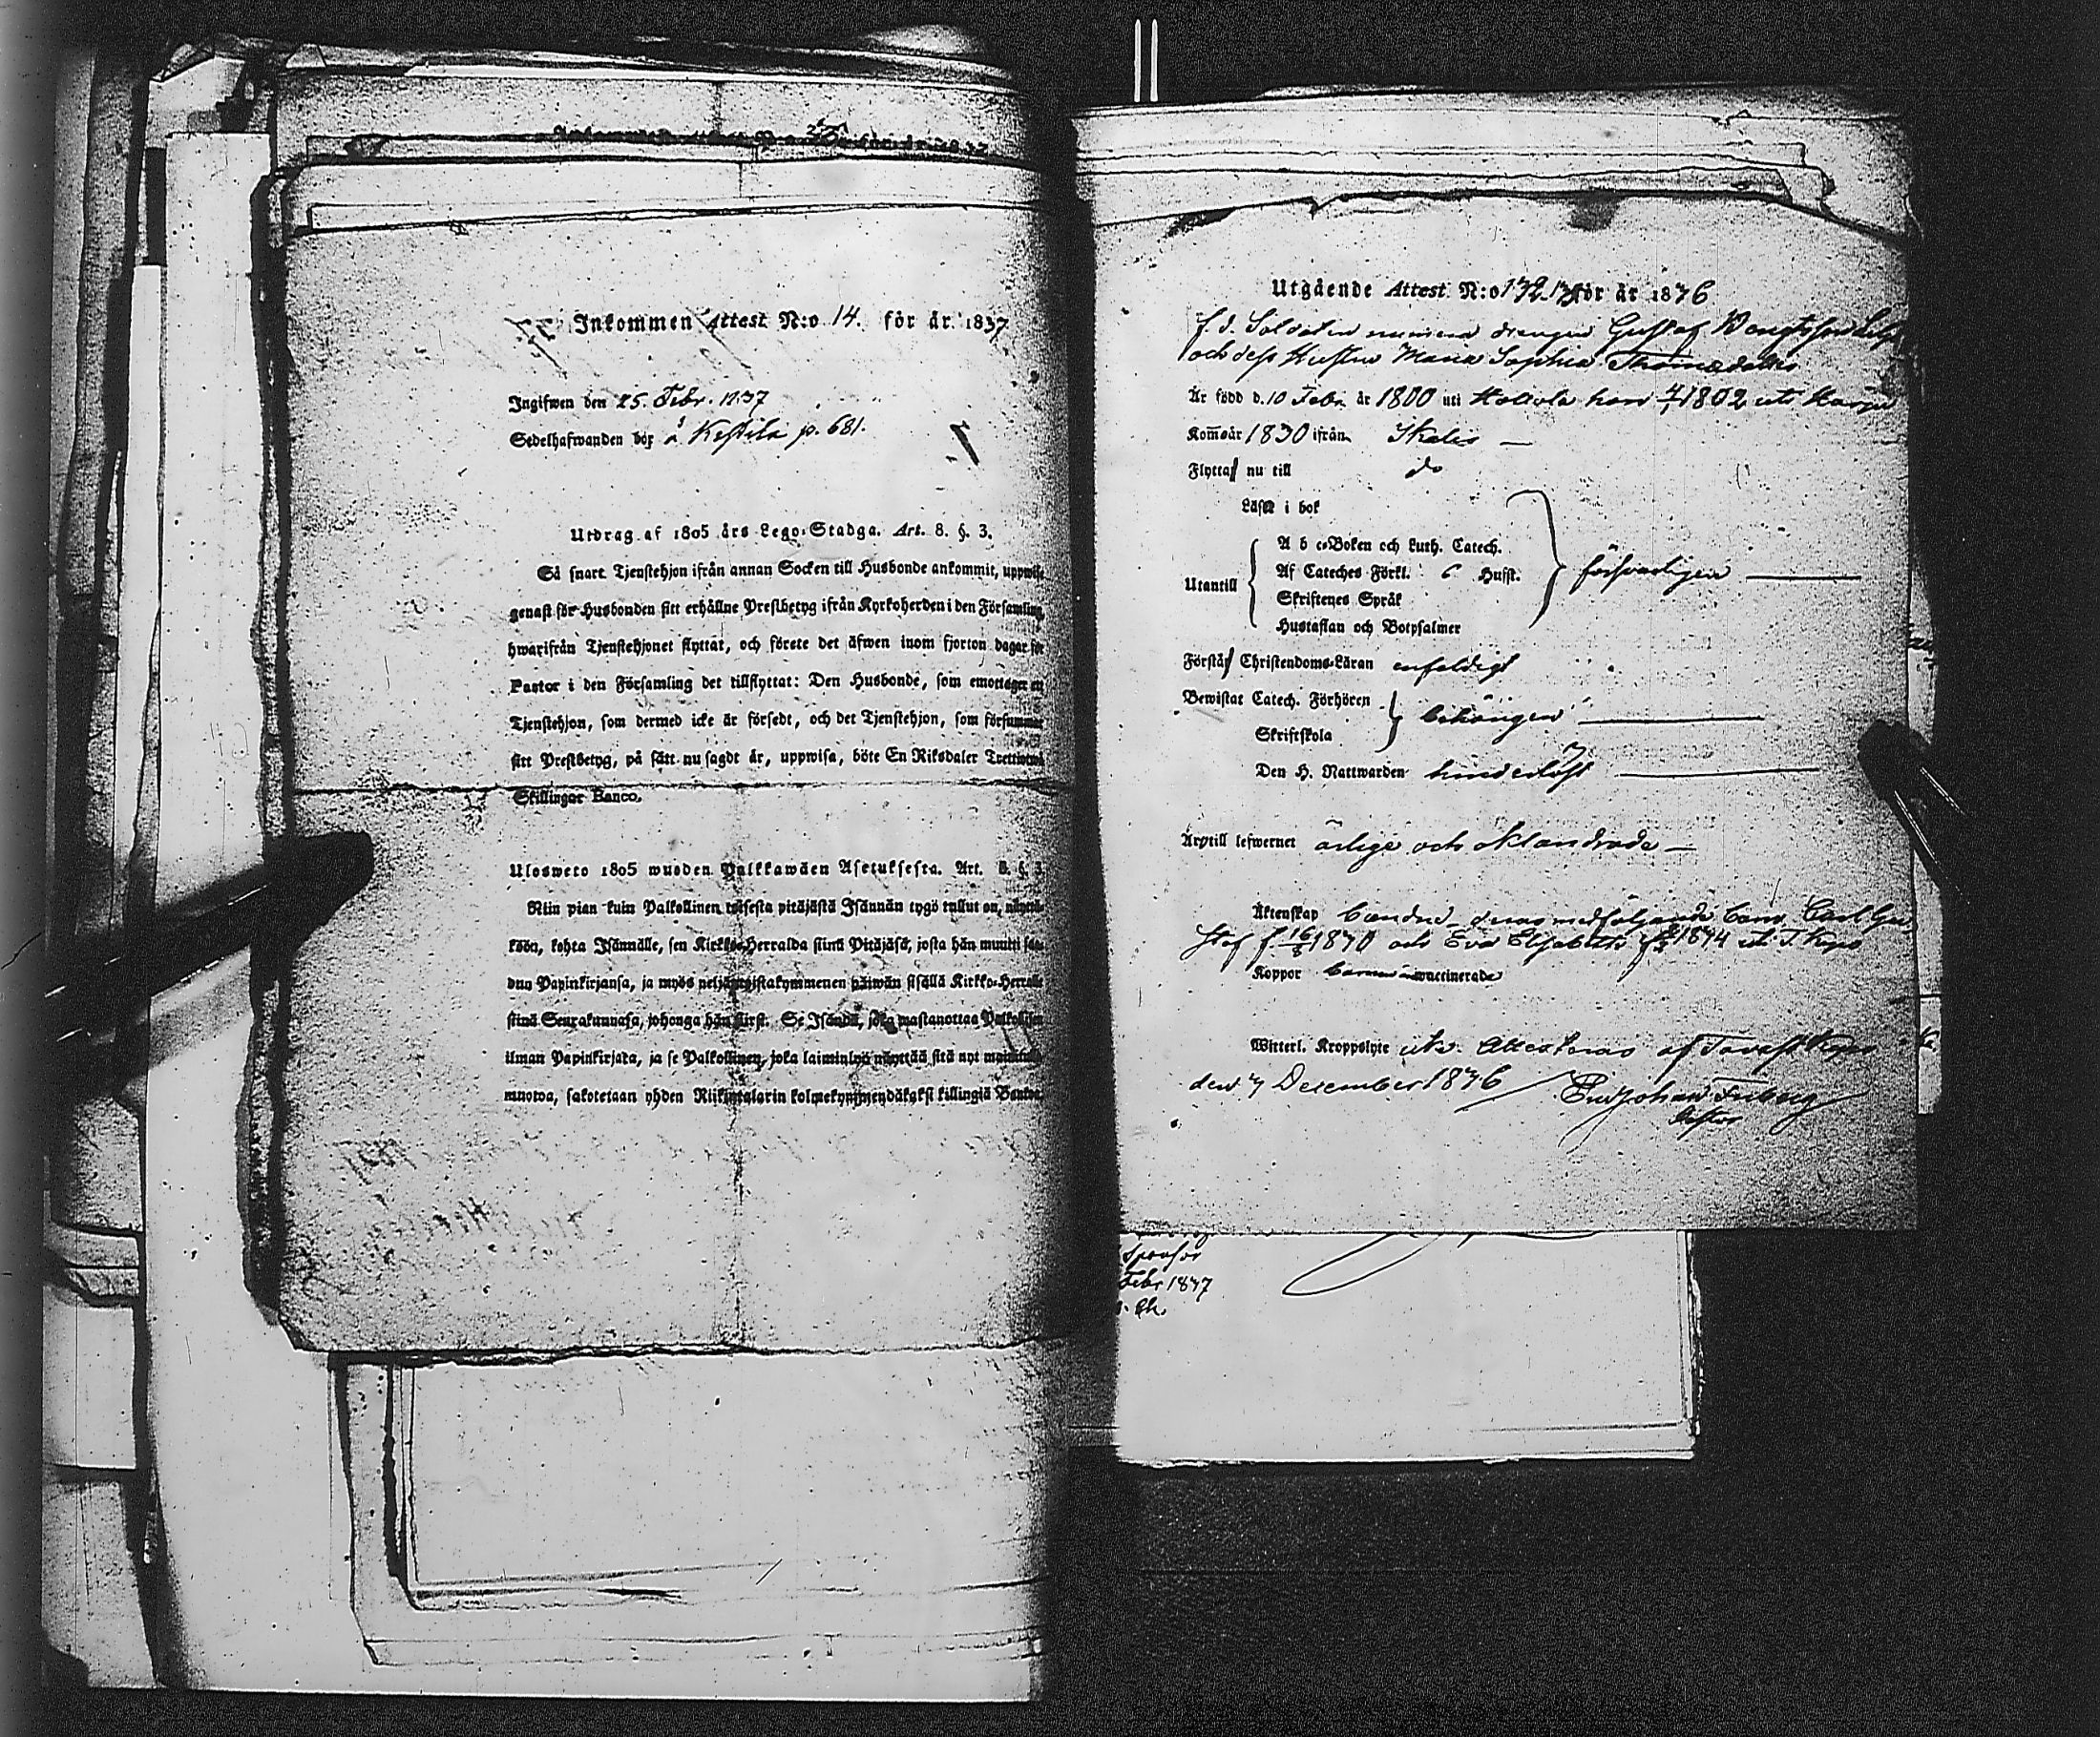 Inkommen Attest N:o 14. för år 1837
Ingifwen den 25. Febr. 1837
Sedelhafwanden bor å Keßilä p. 681.
Utdrag af 1805 års Lego-Stadga. Art. 8. §. 3.
Så snart Tjenstehjon ifrån annan Socken till Husbonde ankommit, uppwise
genast för Husbonden sitt erhållne Prestbetyg ifrån Kyrkoherden i den Församling,
hwarifrån Tjenstehjonet flyttat, och förete det äfwen inom fjorton dagar för
Pastor i den Församling det tillflyttat: Den Husbonde, som emottager en
Tjenstehjon, som dermed icke är försedt, och det Tjenstehjon, som försummar
sitt Prestbetyg, på sätt nu sagdt är, uppwisa, böte En Riksdaler Trettiotwå
Skillingar Banco.
Ulosweto 1805 wuoden Palkkawäen Asetuksesta. Art. 8. §. 3.
Niin pian kuin Palkollinen toisesta pitäjästä Isännän tygö tullut on,
köön, kohta Isännälle, sen Kirkko-Herralda siinä Pitäjäsä, josta hän muutti
dun Papinkirjansa, ja myös neljäntoistakymmenen päiwän sisällä Kirkko-Herralle
siinä Seurakunnasa, johonga hän siirst. Se Isändä, joka wastanottaa Palkollisen
ilman Papinkirjata, ja se Palkollinen, joka laiminlyö näyttää sitä nyt
muotoa, sakotetaan yhden Riikintalarin kolmekymmendäkaksi killingiä Bankos.
Utgående Attest N:o 172.173 för år 1836
f. d. Soldaten numera drengen Gustaf Bengtsson
och deß Hustru Maria Sophia Thomædotter
Är född d. 10 Febr. år 1800 uti Hollola hon 4/1 1802 uti
Kom år 1830 ifrån Ikalis —
Flytta nu till do
Läser i bok
Utantill
A b c-Boken och Luth. Catech.
Af Cateches Förkl. 6 Hufst.
Skriftenes Språk
Hustaflan och Botpsalmer
försvarligen
Förstår Christendoms-Läran enfaldigt
Bewistat Catech. Förhören
Skriftskola
behörigen
Den H. Nattwarden hinderlöst
Är till lefwernet ärlige och oklandrade —
Äktenskap bundne deras medföljande barn Carl Gu-
staf f. 16/8 1830 och Eva Elisabeth f. 1834 uti T. Kyro
Koppor barnen vaccinerade
Witterl. Kroppslyte utan Attesteras af Tavast Kyro
den 7 December 1836 Johan Friberg
Pastor
Sponsor
Febr 1837